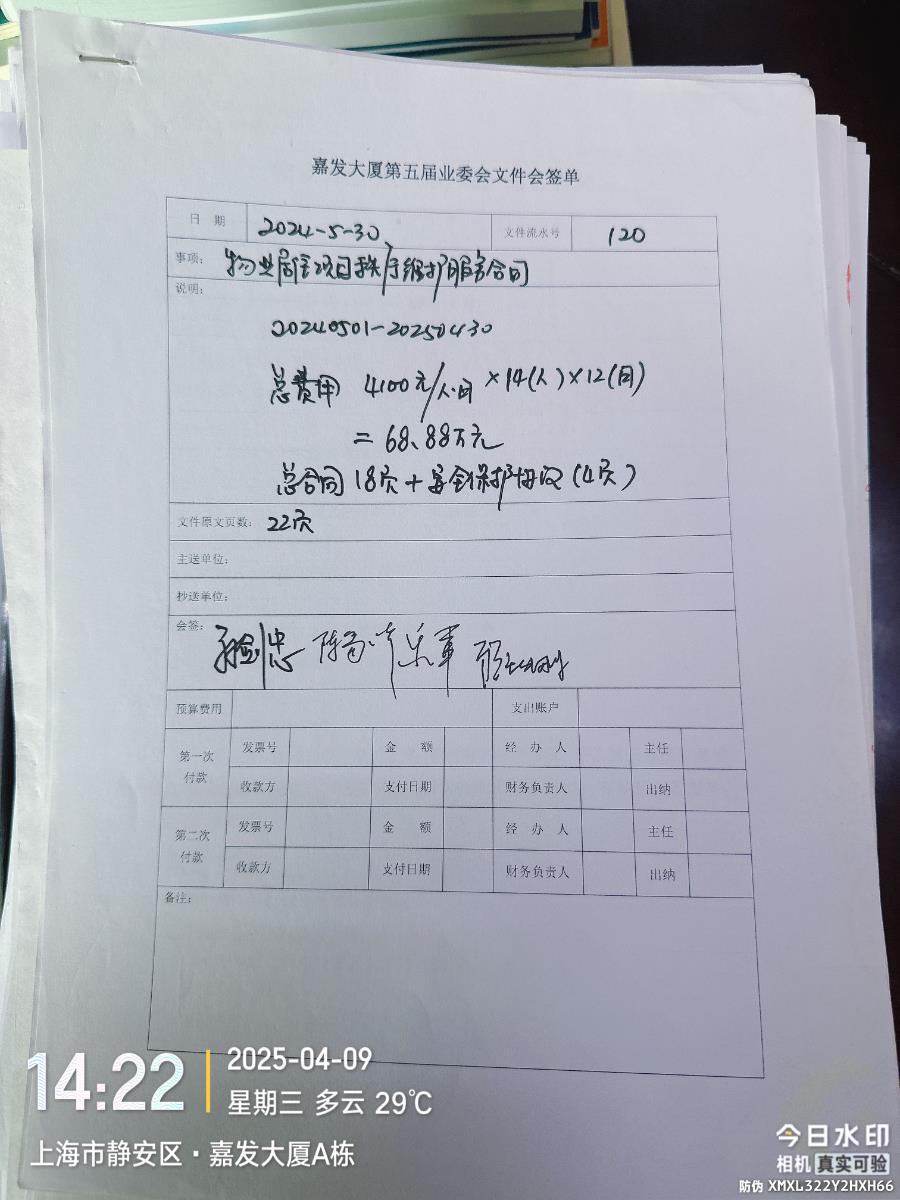 嘉发大厦第五届业委会文件会签单
日 期 2024-5-30 文件流水号 120
事项: 物业居住项目秩序维护服务合同
说明:
20240501-20250430
总费用 4100元/人·月 ×14(人)×12(月)
=68.88万元
总合同18页+安全保护协议(4页)
文件原文页数: 22页
主送单位:
抄送单位:
会签:
预算费用 支出账户
第一次付款 发票号 金 额 经 办 人 主任
收款方 支付日期 财务负责人 出纳
第二次付款 发票号 金 额 经 办 人 主任
收款方 支付日期 财务负责人 出纳
备注:
14:22 2025-04-09
星期三 多云 29℃
上海市静安区·嘉发大厦A栋
今日水印
相机 真实可验
防伪 XMXL322Y2HXH66